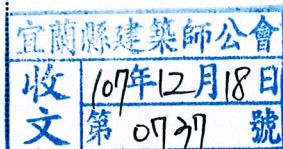 宜蘭縣建築師公會
收文
107年12月18日
第0737號